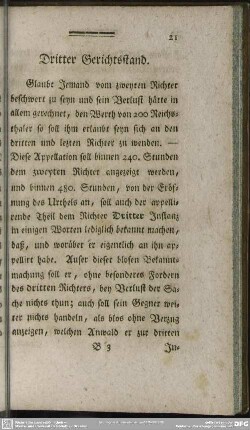 21
Dritter Gerichtsstand.
Glaubt Jemand vom zweyten Richter
beschwert zu seyn und sein Verlust hätte in
allem gerechnet, den Werth von 200 Reichs-
thaler so soll ihm erlaubt seyn sich an den
dritten und lezten Richter zu wenden. —
Diese Appellation soll binnen 240. Stunden
dem zweyten Richter angezeigt werden,
und binnen 480. Stunden, von der Eröf-
nung des Urtheils an, soll auch der appelli-
rende Theil dem Richter Dritter Instanz
in einigen Worten lediglich bekannt machen,
daß, und worüber er eigentlich an ihn ap-
pellirt habe. Ausser dieser blosen Bekannt-
machung soll er, ohne besonderes Fordern
des dritten Richters, bey Verlust der Sa-
che nichts thun; auch soll sein Gegner wei-
ter nichts handeln, als blos ohne Verzug
anzeigen, welchen Anwald er zur dritten
B 3
In-